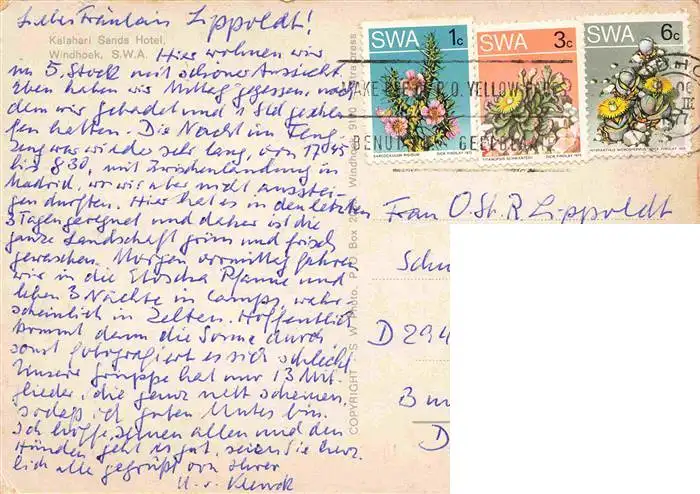 Liebes Fräulein Lippoldt!
Kalahari Sands Hotel,
Windhoek, S.W.A.
Hier wohnen wir
im 5. Stock mit schöner Aussicht.
Eben haben wir Mittag gegessen, nach
dem wir gebadet und 1 Std geschla
fen hatten. Die Nacht im Flug
zeug war wieder sehr lang, von 17.45
bis 8.30, mit Zwischenlandung in
Madrid, wo wir aber nicht ausstei-
gen durften. Hier hat es in den letzten
3 Tagen geregnet und daher ist die
ganze Landschaft grün und frisch
gewaschen. Morgen vormittag fahren
wir in die Etoscha Pfanne und
leben 3 Nächte in Camps, wahr-
scheinlich in Zelten. Hoffentlich
kommt dann die Sonne durch,
sonst fotografiert es sich schlecht.
Unsere Gruppe hat nur 13 Mit-
glieder, die ganz nett scheinen,
sodaß ich guten Mutes bin.
Ich hoffe, Ihnen allen und den
Hunden geht es gut, seien Sie herz
lich alle gegrüßt von Ihrer
SWA 1c
SWA 3c
SWA 6c
P.O. YELLOW
BENUT
COPYRIGHT S W Photo. P.O Box Windhoek
Frau O.St.R Lippoldt
D 294
D